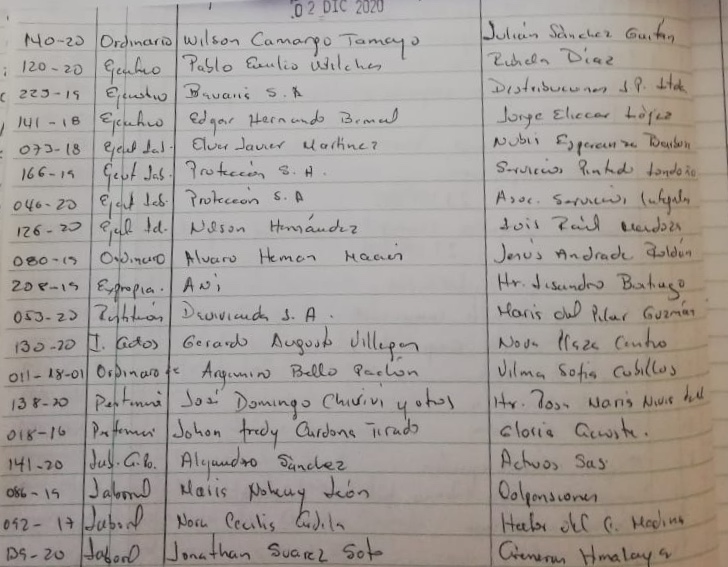 02 DIC 2020
140-20 Ordinario Wilson Camargo Tamayo Julián Sánchez Gaitán
120-20 Ejecutivo Pablo Emilio Wilches Díaz
223-19 Ejecutivo Bavaria S.A Distribuciones J.P. Ltda
141-18 Ejecutivo Edgar Hernando Bernal Jorge Eliecer López
073-18 Ejecut Lab. Elver Javier Martinez Nubis Esperanza
166-19 Ejecut Lab. Protección S.A. Servicios Londoño
046-20 Ejecut Lab. Protección S.A Asoc. Servicios
126-20 Nelson Hernández Luis Raúl Mendoza
080-19 Ordinario Alvaro Hernan Jesús Andrade Roldón
208-19 Expropia. ANI Hr. Lisandro Buitrago
053-20 Davivienda S.A. Maris del Pilar Guzmán
130-20 Gerardo Augusto Villegas Nova Plaza Centro
011-18-01 Ordinario Argemiro Bello Pachón Vilma Sofia Cubillos
138-20 José Domingo Chivivi y otros Hr. Rosa Maris
018-16 Johon Fredy Cardona Tirado Gloria
141-20 Alejandro Sánchez Activos Sas
086-19 Laboral León Colpensiones
092-17 Laboral Nora Cecilis Hector del C. Medina
-20 Laboral Jonathan Suarez Soto Himalaya